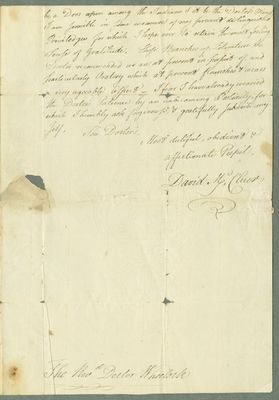 be a Door open among the
I am sensible in some measure of my present distinguished
Priviledges for which I hope ever to retain the most feeling
Sense of Gratitude. Those Branches of Literature the
Doctor recommended us are at present in pursuit of and
particularly Oratory which at present flourishes &
very agreeable I fear I have already wearied
the Doctor's Patience by an unbecoming Prolixity for
which I humbly ask forgiveness & gratefully subscribe my
self. Rev Doctor's
Most dutiful, obedient &
affectionate Pupil.
David McClure
The Revd Doctor Wheelock